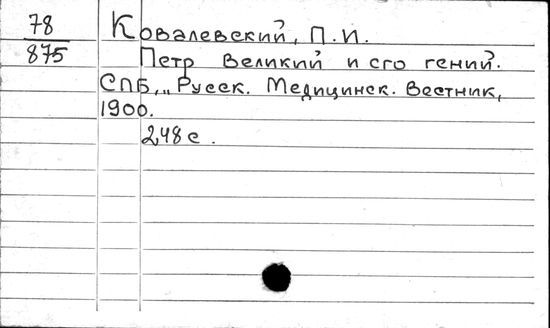 78 Ковалевский, П.И.
875 Петр Великий и его гений.
СПБ, „Русск. Медицинск. Вестник,
1900.
248 с.